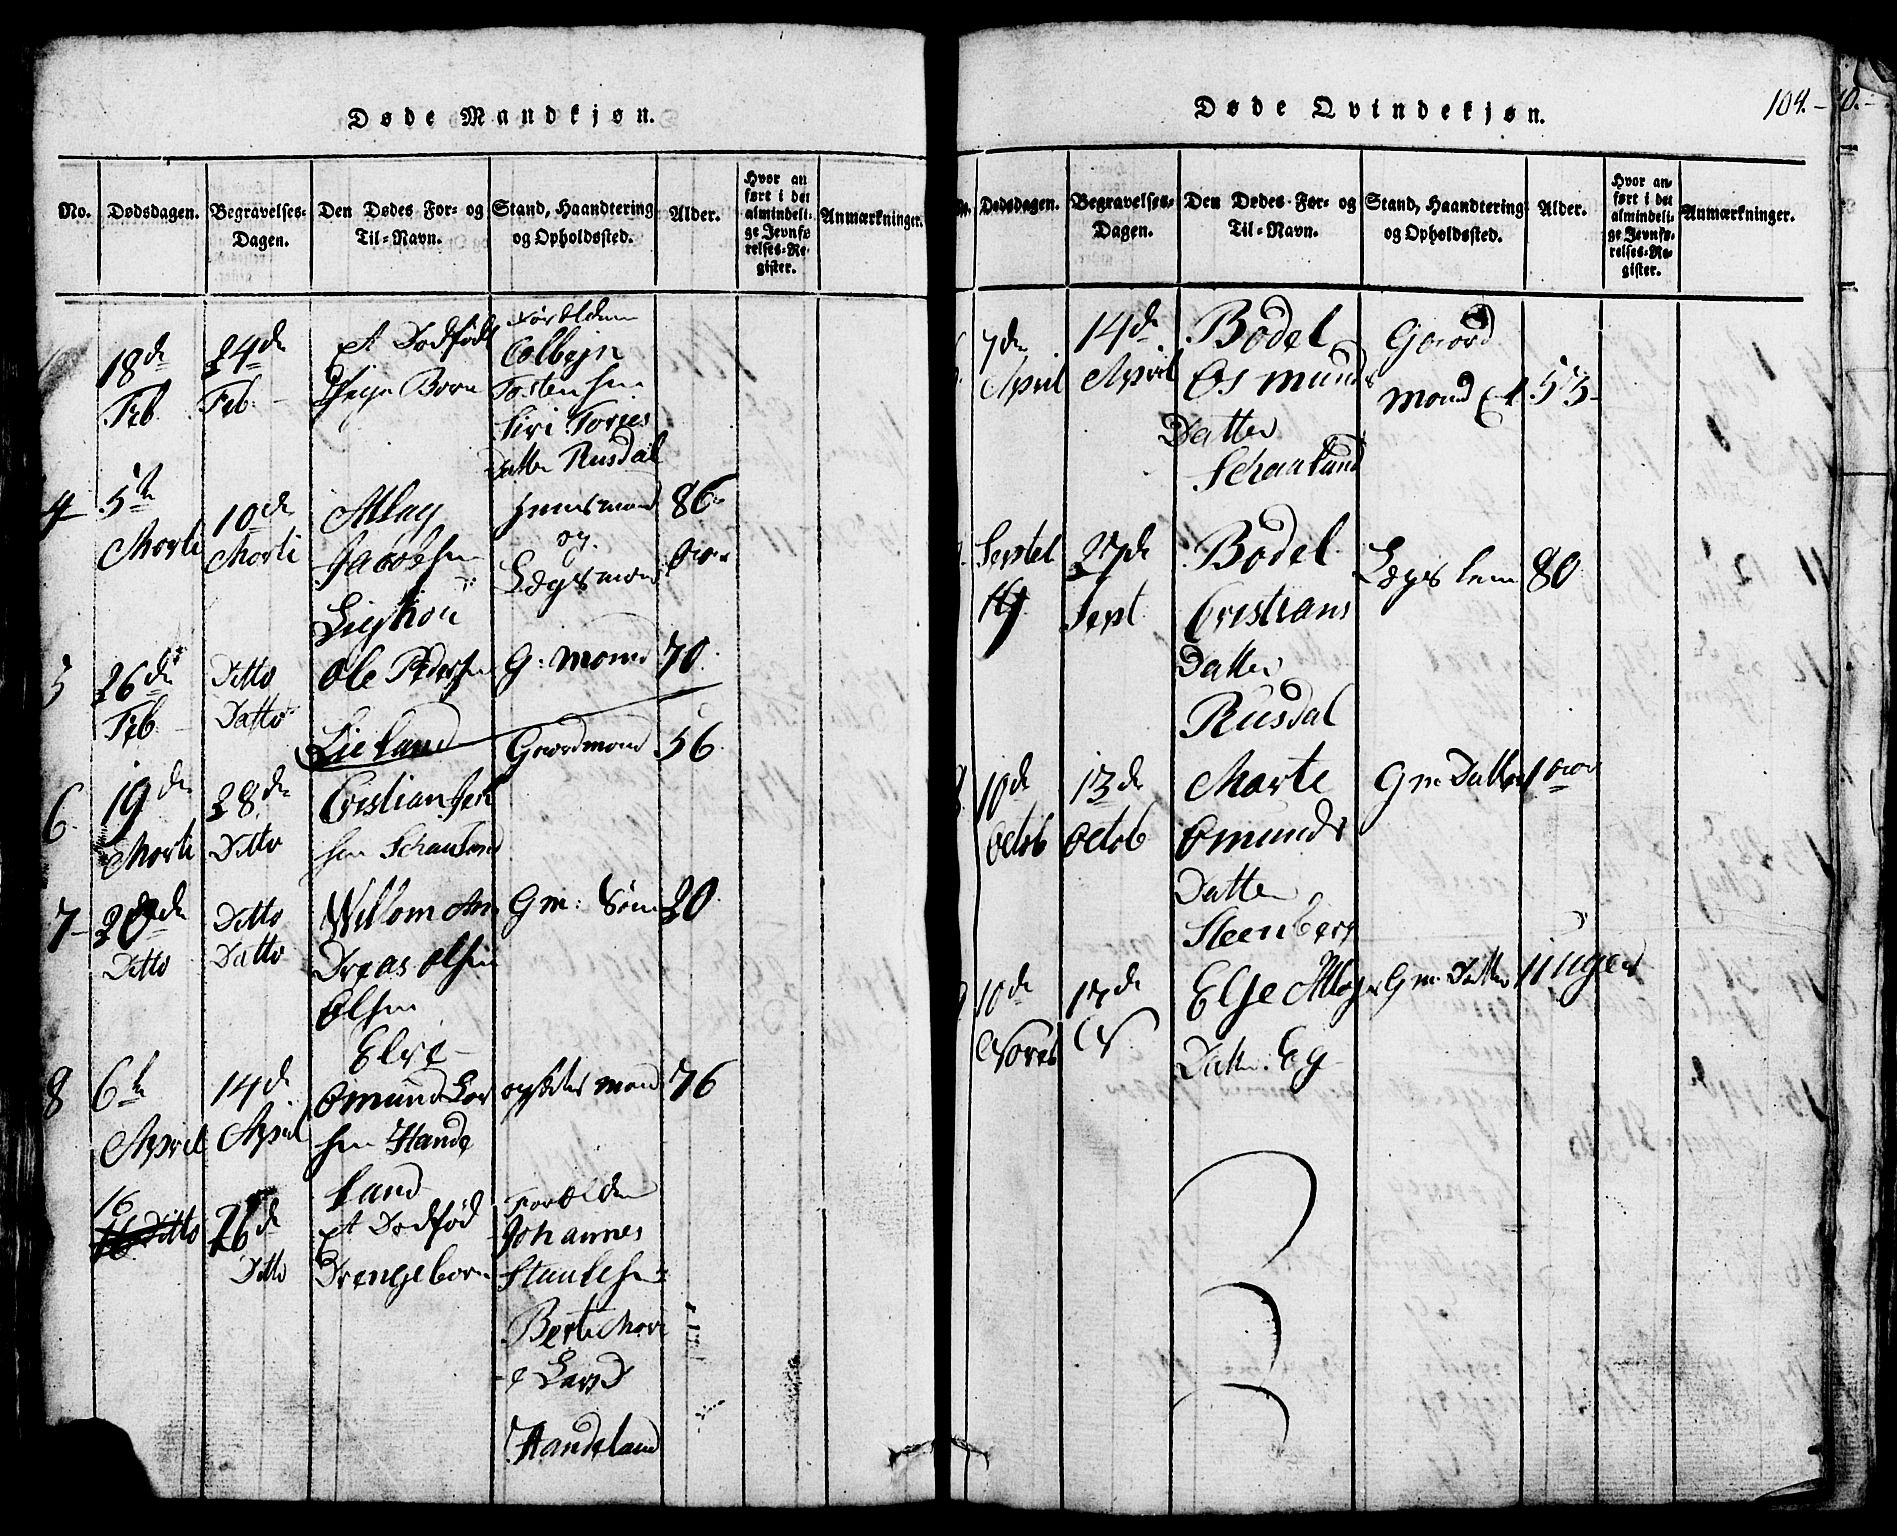 Døde Mandkjøn.
No.
Dødsdagen.
Begravelses-
Dagen.
Den Dødes For- og
Til-Navn.
Stand, Haandtering
og Opholdssted.
Alder.
Hvor an
ført i det
almindeli-
ge Jevnfø
relses-Re-
gister.
Anmærkninger.
18de
Feb.
24de
Feb.
et Dodfødt
Pige Born
Forældrene
Colbejn
Tostensen
Siri Tories
Datter Rusdal
4
5te
Morti
10de
Morti
Atlag
Jacobsen
Lieghou
og
Lægsmond
86
5
26de
Feb
Ditto
Datto
Ole Pedersen
Lieland
G: mond
70
6
19de
Morti
28de
Ditto
Cristian
sen Schauland
Goordmond
56
7
20de
Ditto
Ditto
Datto
Willom An
Dreas Olsen
Olsen
Elve
Gm: Søn
20
8
6te
April
14de
April
Omund Lar
sen Hande
land
mond
76
16
16 Ditto
26de
Ditto
et Dodfød
Drengeborn
Forælden
Johannes
Staulesen
Berte Mari
e Larsd
Handeland
Døde Qvindekjøn.
104.
No.
Dødsdagen.
Begravelses-
Dagen.
Den Dødes For- og
Til-Navn.
Stand, Haandtering
og Opholdssted.
Alder.
Hvor an-
ført i det
almindeli-
ge Jevnfø-
relses-Re-
gister.
Anmærkninger.
7de
April
14de
April
Bodel
Osmunds
Datter
Schauland
Goord
mond
53
Septeb
19
27de
Sept
Bodel
Cristians
Datter
Rusdal
Lægs lem
80
10de
Octob
13de
Octob
Marte
Omunds
Datter
Steenberg
Gm Datter
1
10de
Noveb
17de
N
Else Atlags
Datter Eg
Gm Datter
11 uger